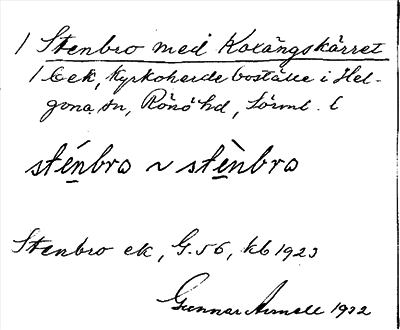 / Stenbro med Koxängskärret
/ cek, kyrkoherdeboställe i Hel-
gona sn, Rönö hd, Sörml. l
sténbro ~ stènbro
Stenbro ek, G. 56, kb 1923
Gunnar 1932